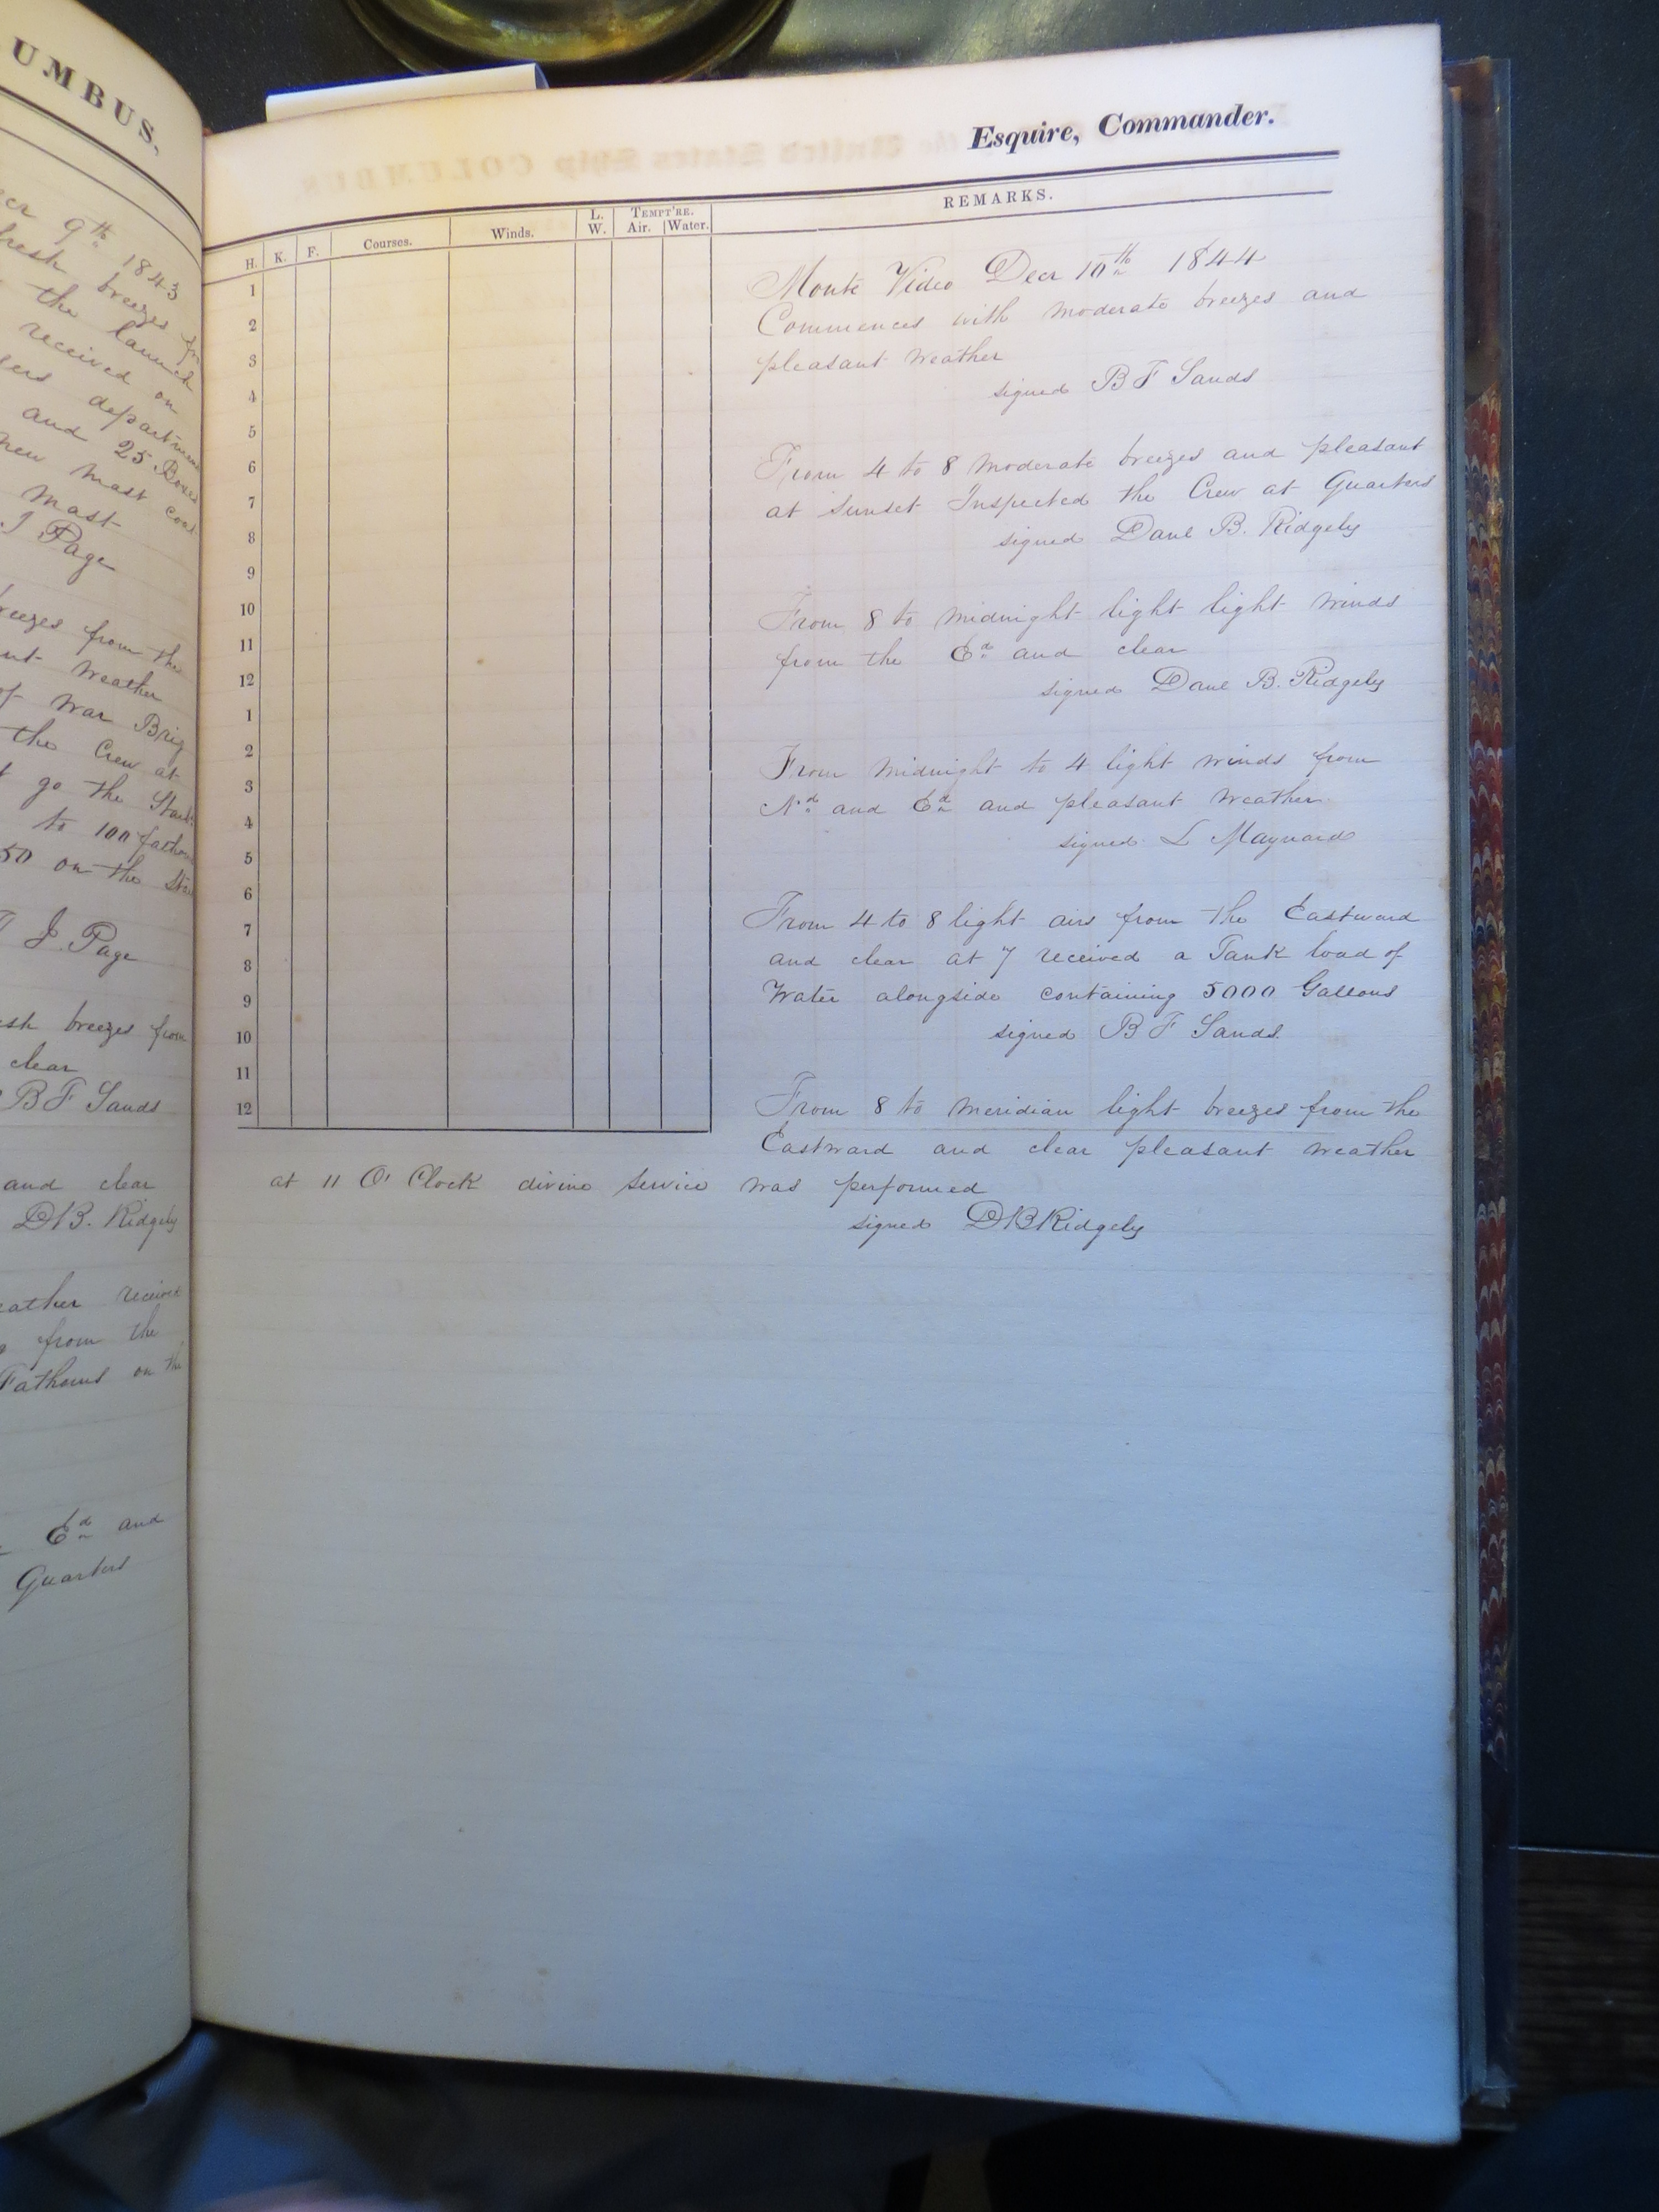 UMBUS.
9th 1843
fresh breezes
the launch
received on
departmen
and 25 Boxes
new mast coat
mast
J Page
breezes from the
weather
of War Brig
the Crew at
go the
to 100 fathoms
50 on the
T J. Page
breezes from
clear
BF Sands
and clear
DB. Ridgely
received
from the
Fathoms on the
Ed and
Quarters
Esquire, Commander.
H. K. F. Courses. Winds. L. W. TEMPT'RE. Air. Water. REMARKS.
1
2
3
4
5
6
7
8
9
10
11
12
1
2
3
4
5
6
7
8
9
10
11
12
Monte Video Decr 10th 1844
Commences with moderate breezes and
pleasant weather
signed B F Sands
From 4 to 8 moderate breezes and pleasant
at Sunset Inspected the Crew at Quarters
signed Danl B. Ridgely
From 8 to midnight light light winds
from the Ed and clear
signed Danl B. Ridgely
From Midnight to 4 light winds from
Nd and Ed and pleasant weather
signed L Maynard
From 4 to 8 light airs from the Eastward
and clear at 7 received a Tank load of
Water alongside containing 5000 Gallons
signed B F Sands
From 8 to Meridian light breezes from the
Eastward and clear pleasant weather
at 11 O' Clock divine service was performed
signed DBRidgely